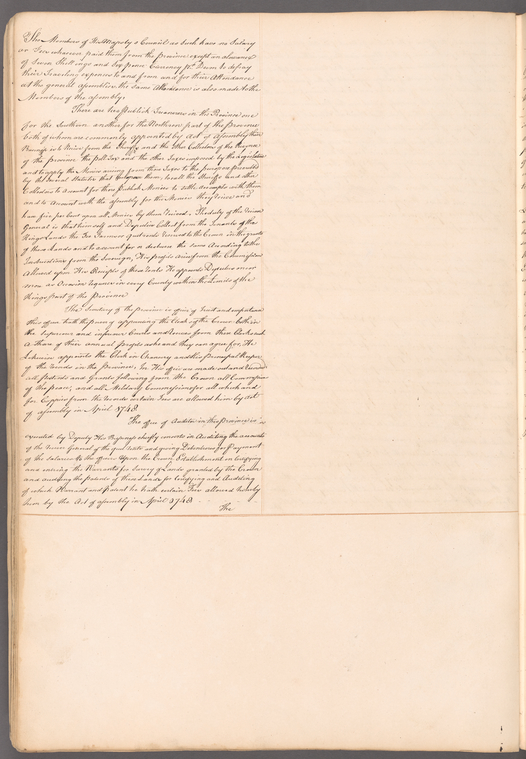 The Members of His Majesty's Council as such have no Salary
or Fees wherein paid them from the province except an allowance
of seven Shillings and Six pence Currency pr Diem to defray
their Traveling expences to and from and for their Attendance
at the general assemblies the same Allowance is also made to the
Members of the assembly.
There are two Publick Treasurers in the Province one
for the Southern another for the Northern part of the province
both of whom are commonly appointed by Act of Assembly their
Business is to Receive from the Sheriffs and the other Collectors of the Revenue
of the province the poll Tax and the other Taxes imposed by the Legislature
and to apply the Monies arising from these Taxes to the purposes prescribed
by the several Statutes that them, to call the Sheriffs and other
Collectors to Account for these Publick Monies to settle accompts with them
and to Account with the assembly for the Monies they receive and
have five per Cent upon all Monies by them received. The duty of the Receiver
General is that himself and Deputies Collect from the Tenants of the
Kings Lands the Fee Farmers quit rents reserved to the Crown in the grants
of these Lands and to account for and the same According to the
Instructions from the Sovereign, His profits arise from the Commission
Allowed upon His Receipts of these rents He appoints Deputies more
or in every County within the limits of the
Kings part of the Province
The Secretary of the province is office of trust and reputation
this officer hath the power of appointing the Clerks of the Crown both in
the Supreme and inferior Courts and receives from these Clerks each
a share of their annual profits as he and they can agree for, He
likewise appoints the Clerk in Chancery and the principal Keeper
of the records in the province, In His office are made out and Recorded
all patents and Grants following from the Crown all Commissions
of the peace, and all Military Commissions for all which and
for Copies from the records certain Fees are allowed him by act
of assembly in April 1748
The office of Auditor in this province is
executed by Deputy His Business chiefly consists in Auditing the accounts
of the Receiver General of the quit rents and giving Debentures for payment
of the salaries to the officers upon the Crown Establishment in Certifying
and entering the Warrants for Survey of Lands granted by the Crown
and auditing the patents of these Lands for Certifying and Auditing
of which Warrant and patent he hath certain Fees allowed thereby
him by the Act of assembly in April 1748
The